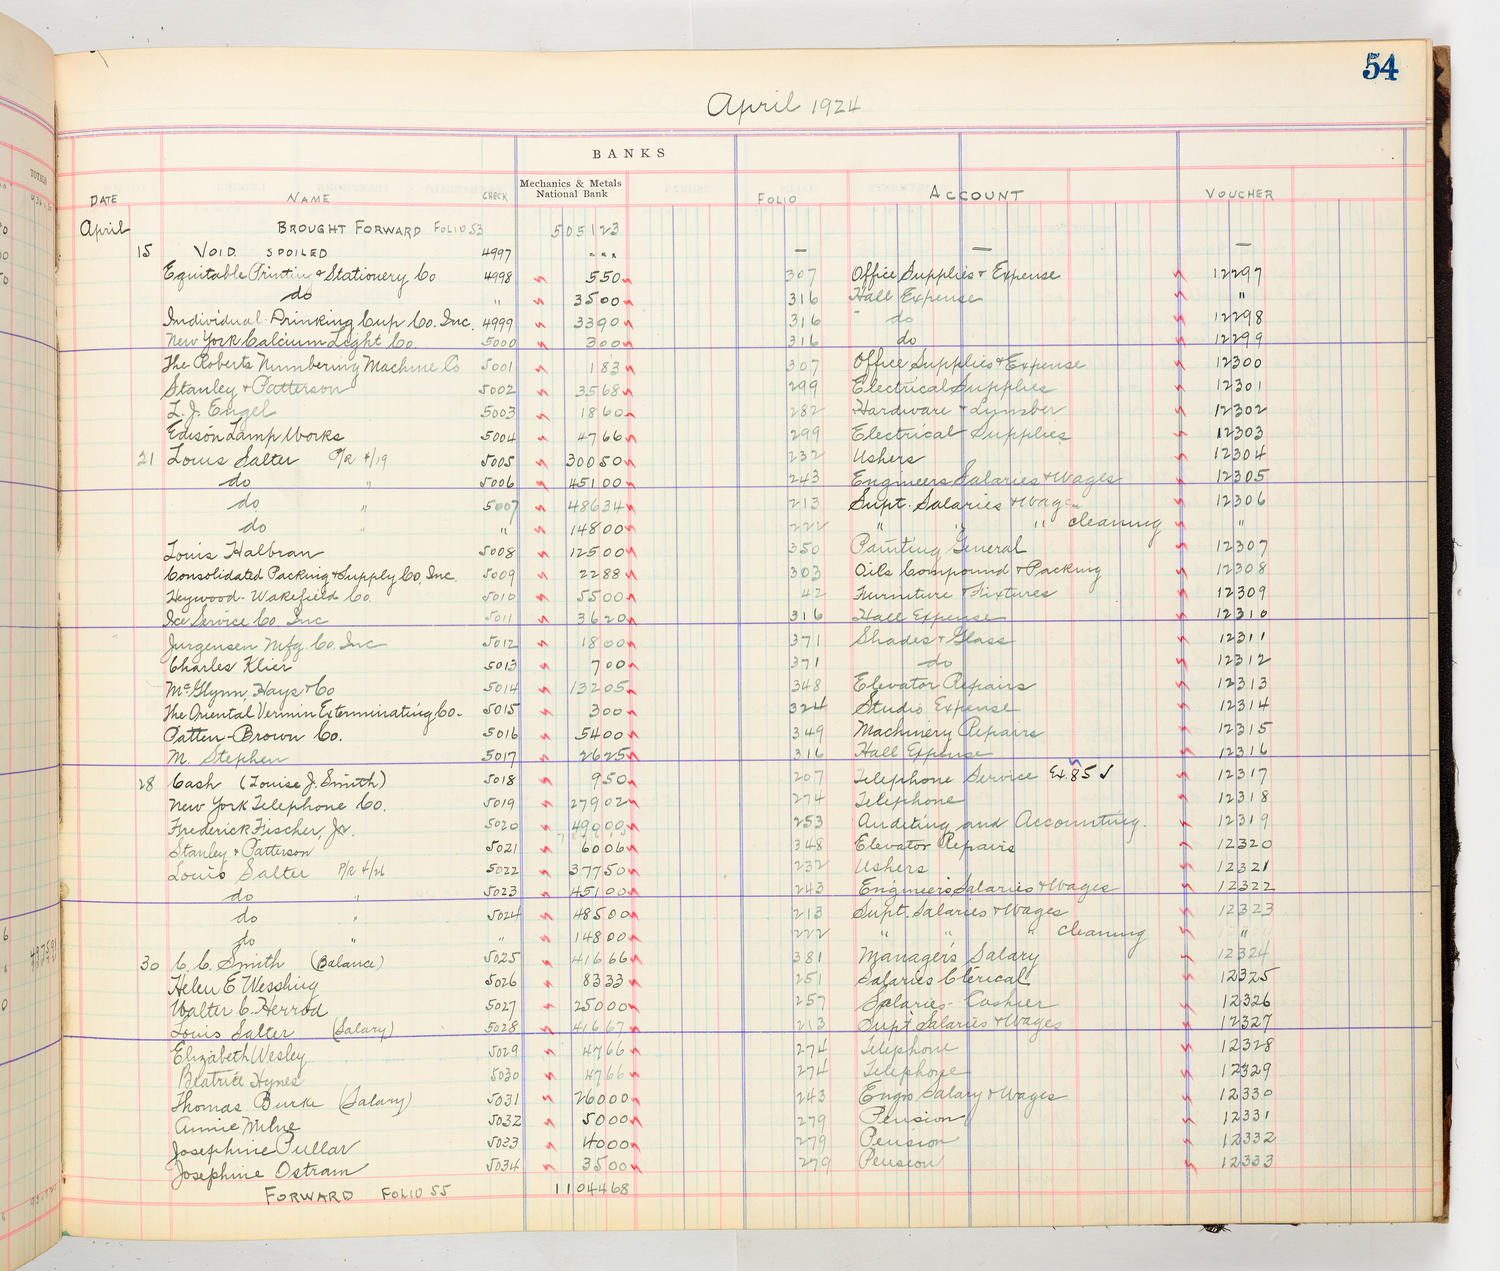 54
April 1924
BANKS
DATE NAME CHECK Mechanics & Metals National Bank FOLIO ACCOUNT VOUCHER
April BROUGHT FORWARD FOLIO 53 505123
15 VOID SPOILED 4997 " " " — — —
Equitable Printing & Stationery Co 4998 550 307 Office Supplies & Expense 12297
do " 3500 316 Hall Expense "
Individual Drinking Cup Co. Inc. 4999 3390 316 " do 12298
New York Calcium Light Co. 5000 300 316 do 12299
The Roberts Numbering Machine Co 5001 183 307 Office Supplies & Expense 12300
Stanley & Patterson 5002 3568 299 Electrical Supplies 12301
L. J. Engel 5003 1860 282 Hardware & Lumber 12302
Edison Lamp Works 5004 4766 299 Electrical Supplies 12303
21 Louis Salter P/R 4/19 5005 30050 232 Ushers 12304
do " 5006 45100 243 Engineers Salaries & Wages 12305
do " 5007 48634 213 Supt. Salaries & Wages 12306
do " " 14800 222 " " " cleaning "
Louis Halbran 5008 12500 350 Painting General 12307
Consolidated Packing & Supply Co, Inc. 5009 2288 303 Oils Compound & Packing 12308
Heywood-Wakefield Co. 5010 5500 42 Furniture & Fixtures 12309
Ice Service Co Inc 5011 3620 316 Hall Expense 12310
Jurgensen Mfg Co. Inc 5012 1800 371 Shades & Glass 12311
Charles Klier 5013 700 371 do 12312
McGlynn, Hays & Co 5014 13205 348 Elevator Repairs 12313
The Oriental Vermin Exterminating Co. 5015 300 324 Studio Expense 12314
Patten-Brown Co. 5016 5400 349 Machinery Repairs 12315
M. Stephen 5017 2625 316 Hall Expense 12316
28 Cash (Louise J. Smith) 5018 950 207 Telephone Service Ex. 85 ✓ 12317
New York Telephone Co. 5019 27902 274 Telephone 12318
Frederick Fischer, Jr. 5020 49900 253 Auditing and Accounting. 12319
Stanley & Patterson 5021 6006 348 Elevator Repairs 12320
Louis Salter P/R 4/26 5022 37750 232 Ushers 12321
do " 5023 45100 243 Engineers Salaries & Wages 12322
do " 5024 48500 213 Supt. Salaries & Wages 12323
do " " 14800 222 " " " cleaning "
30 C. C. Smith (Balance) 5025 41666 381 Manager's Salary 12324
Helen E Wessling 5026 8333 251 Salaries Clerical 12325
Walter C. Herrod 5027 25000 257 Salaries-Cashier 12326
Louis Salter (Salary) 5028 41667 213 Supt Salaries & Wages 12327
Elizabeth Wesley 5029 4766 274 Telephone 12328
Beatrice Hynes 5030 4766 274 Telephone 12329
Thomas Burke (Salary) 5031 26000 243 Engrs Salary & Wages 12330
Annie Milne 5032 5000 279 Pension 12331
Josephine Pullar 5033 4000 279 Pension 12332
Josephine Ostram 5034 3500 279 Pension 12333
FORWARD FOLIO 55 1104468